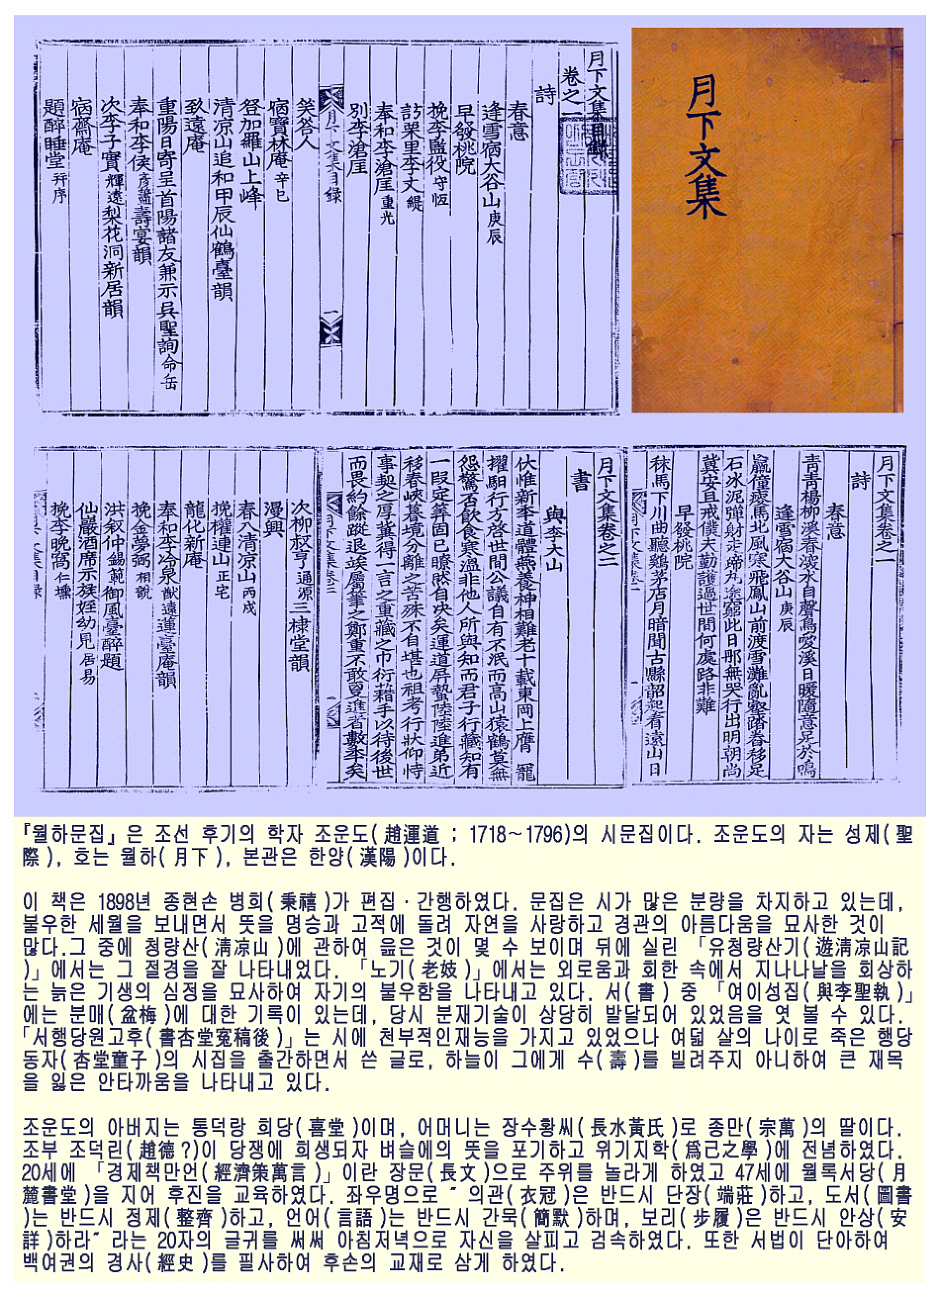 月下文集
月下文集目錄
卷之一
詩
春意
逢雪宿大谷山 庚辰
早發桃院
挽李監役 守恆
訪栗里李丈 緹
奉和李滄厓 重光
別李滄厓
月下文集目錄 一
笑答人
宿寶林庵 辛巳
登加羅山上峰
清凉山追和甲辰仙鶴臺韻
致遠庵
重陽日寄呈首陽諸友兼示吳聖詢 命岳
奉和李侯 壽宴韻
次李子實 輝遠 梨花洞新居韻
宿齋庵
題醉睡堂 幷序
月下文集卷之一
詩
春意
青青楊柳溪春淡水自聲鳥愛溪日暖隨意足於鳴
逢雪宿大谷山 庚辰
羸僮瘦馬北風寒飛鳳山前渡雪灘亂壑踏眷移足
石氷泥彈射走蹄丸途窮此日那無哭行出明朝尚
冀安且戒僕夫勤護過世間何處路非難
早發桃院
秣馬下川曲聽鷄茅店月暗聞古縣韶起看遠山日
月下文集卷之二
書
與李大山
伏惟新奉道體燕養神相難老十載東岡上膺 寵
擢騶行方啓世間公議自有不泯而高山猿鶴莫無
怨驚否飮食寒溫非他人所與知而君子行藏知有
一段定算固已瞭然自決矣運道屛蟄陸陸進弟近
移春峽墓境分離之苦殊不自堪也祖考行狀仰恃
事契之厚冀得一言之重藏之巾衍藉手以待後世
而畏約餘蹤退竢屬筆之鄭重不敢亟進者數年矣
次柳叔亨 通源 三棣堂韻
漫興
春入清凉山 丙戌
挽權連山 正宅
龍化新庵
奉和李冷泉 猷遠 蓮臺庵韻
挽金夢弼
洪叙仲 錫範 御風臺醉題
仙巖酒席示族姪幼見 居易
挽李晚窩 仁壎
『월하문집』은 조선 후기의 학자 조운도(趙運道 ; 1718～1796)의 시문집이다. 조운도의 자는 성제(聖
際), 호는 월하(月下), 본관은 한양(漢陽)이다.
이 책은 1898년 종현손 병희(秉禧)가 편집·간행하였다. 문집은 시가 많은 분량을 차지하고 있는데,
불우한 세월을 보내면서 뜻을 명승과 고적에 돌려 자연을 사랑하고 경관의 아름다움을 묘사한 것이
많다.그 중에 청량산(淸凉山)에 관하여 읊은 것이 몇 수 보이며 뒤에 실린 「유청량산기(遊淸凉山記
)」에서는 그 절경을 잘 나타내었다. 「노기(老妓)」에서는 외로움과 회한 속에서 지나나날을 회상하
는 늙은 기생의 심정을 묘사하여 자기의 불우함을 나타내고 있다. 서(書) 중 「여이성집(與李聖執)」
에는 분매(盆梅)에 대한 기록이 있는데, 당시 분재기술이 상당히 발달되어 있었음을 엿 볼 수 있다.
「서행당원고후(書杏堂寃稿後)」는 시에 천부적인재능을 가지고 있었으나 여덟 살의 나이로 죽은 행당
동자(杏堂童子)의 시집을 출간하면서 쓴 글로, 하늘이 그에게 수(壽)를 빌려주지 아니하여 큰 재목
을 잃은 안타까움을 나타내고 있다.
조운도의 아버지는 통덕랑 희당(喜堂)이며, 어머니는 장수황씨(長水黃氏)로 종만(宗萬)의 딸이다.
조부 조덕린(趙德?)이 당쟁에 희생되자 벼슬에의 뜻을 포기하고 위기지학(爲己之學)에 전념하였다.
20세에 「경제책만언(經濟策萬言)」이란 장문(長文)으로 주위를 놀라게 하였고 47세에 월록서당(月
麓書堂)을 지어 후진을 교육하였다. 좌우명으로 ˝의관(衣冠)은 반드시 단장(端莊)하고, 도서(圖書
)는 반드시 정제(整齊)하고, 언어(言語)는 반드시 간묵(簡默)하며, 보리(步履)은 반드시 안상(安
詳)하라˝라는 20자의 글귀를 써써 아침저녁으로 자신을 살피고 검속하였다. 또한 서법이 단아하여
백여권의 경사(經史)를 필사하여 후손의 교재로 삼게 하였다.